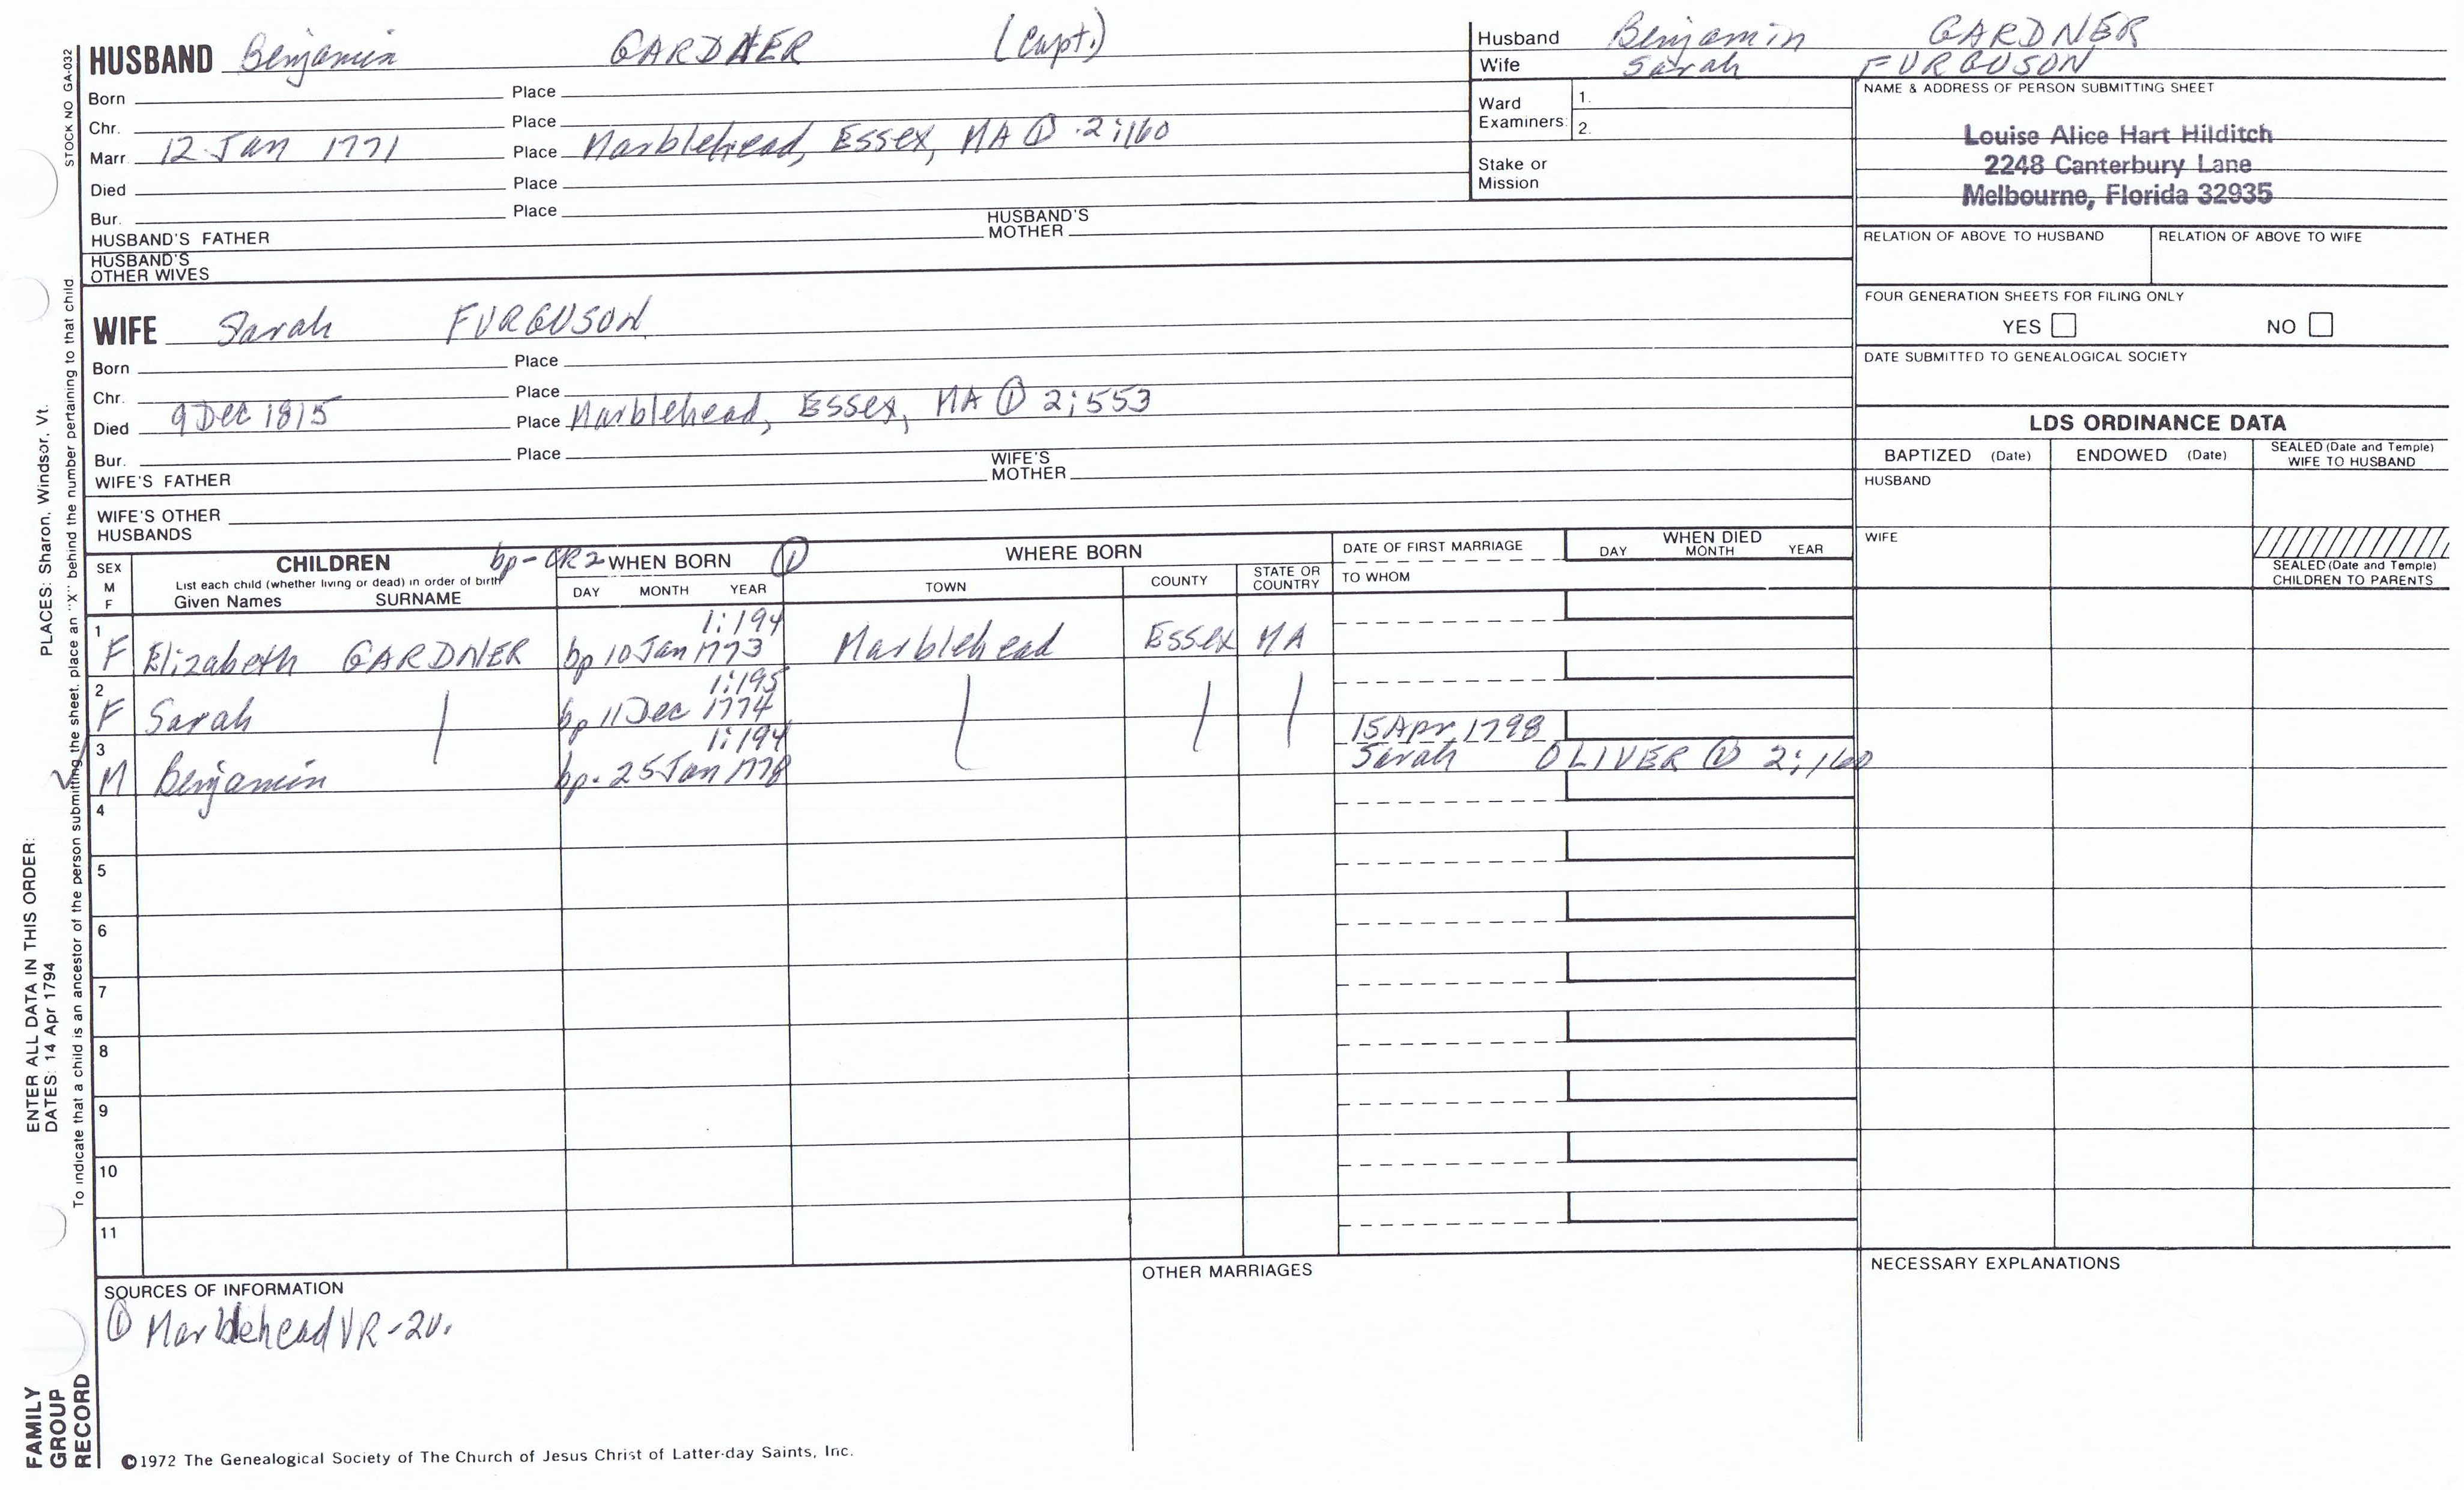 STOCK NO GA-032
HUSBAND Benjamin GARDNER (Capt.)
Born Place
Chr. Place
Marr. 12 Jan 1771 Place Marblehead, Essex, MA ① 2:160
Died Place
Bur. Place
HUSBAND'S FATHER HUSBAND'S MOTHER
HUSBAND'S OTHER WIVES
Husband Benjamin GARDNER
Wife Sarah FURGUSON
Ward Examiners: 1.
2.
Stake or Mission
NAME & ADDRESS OF PERSON SUBMITTING SHEET
Louise Alice Hart Hilditch
2248 Canterbury Lane
Melbourne, Florida 32935
RELATION OF ABOVE TO HUSBAND RELATION OF ABOVE TO WIFE
FOUR GENERATION SHEETS FOR FILING ONLY
YES NO
DATE SUBMITTED TO GENEALOGICAL SOCIETY
WIFE Sarah FURGUSON
Born Place
Chr. Place
Died 9 Dec 1815 Place Marblehead, Essex, MA ① 2:553
Bur. Place
WIFE'S FATHER WIFE'S MOTHER
WIFE'S OTHER HUSBANDS
LDS ORDINANCE DATA
BAPTIZED (Date) ENDOWED (Date) SEALED (Date and Temple) WIFE TO HUSBAND
HUSBAND
WIFE
SEALED (Date and Temple) CHILDREN TO PARENTS
SEX M F
CHILDREN
List each child (whether living or dead) in order of birth
Given Names SURNAME
bp - CR2 WHEN BORN ①
DAY MONTH YEAR
WHERE BORN
TOWN COUNTY STATE OR COUNTRY
DATE OF FIRST MARRIAGE
TO WHOM
WHEN DIED
DAY MONTH YEAR
1:194
1 F Elizabeth GARDNER bp 10 Jan 1773 Marblehead Essex MA
1:195
2 F Sarah bp 11 Dec 1774
1:194
15 Apr 1798
3 M Benjamin bp. 25 Jan 1778 Sarah OLIVER ① 2:160
4
5
6
7
8
9
10
11
SOURCES OF INFORMATION
① Marblehead VR - 2v.
OTHER MARRIAGES
NECESSARY EXPLANATIONS
©1972 The Genealogical Society of The Church of Jesus Christ of Latter-day Saints, Inc.
FAMILY GROUP RECORD
ENTER ALL DATA IN THIS ORDER:
DATES: 14 Apr 1794 PLACES: Sharon, Windsor, Vt.
To indicate that a child is an ancestor of the person submitting the sheet, place an "X" behind the number pertaining to that child